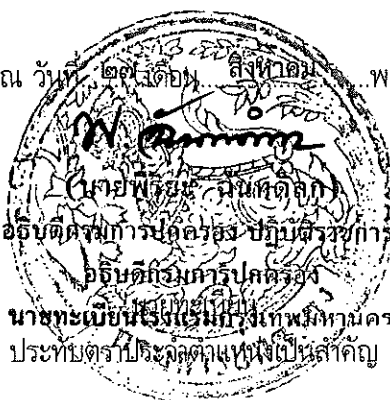 ณ วันที่ ๒๗ เดือน สิงหาคม พ
(นายพีริยะ ฉันทดิลก)
อธิบดีกรมการปกครอง ปฏิบัติราชการ
อธิบดีกรมการปกครอง
นายทะเบียน
นายทะเบียนโรงแรมกรุงเทพมหานคร
ประทับตราประจำตำแหน่งเป็นสำคัญ